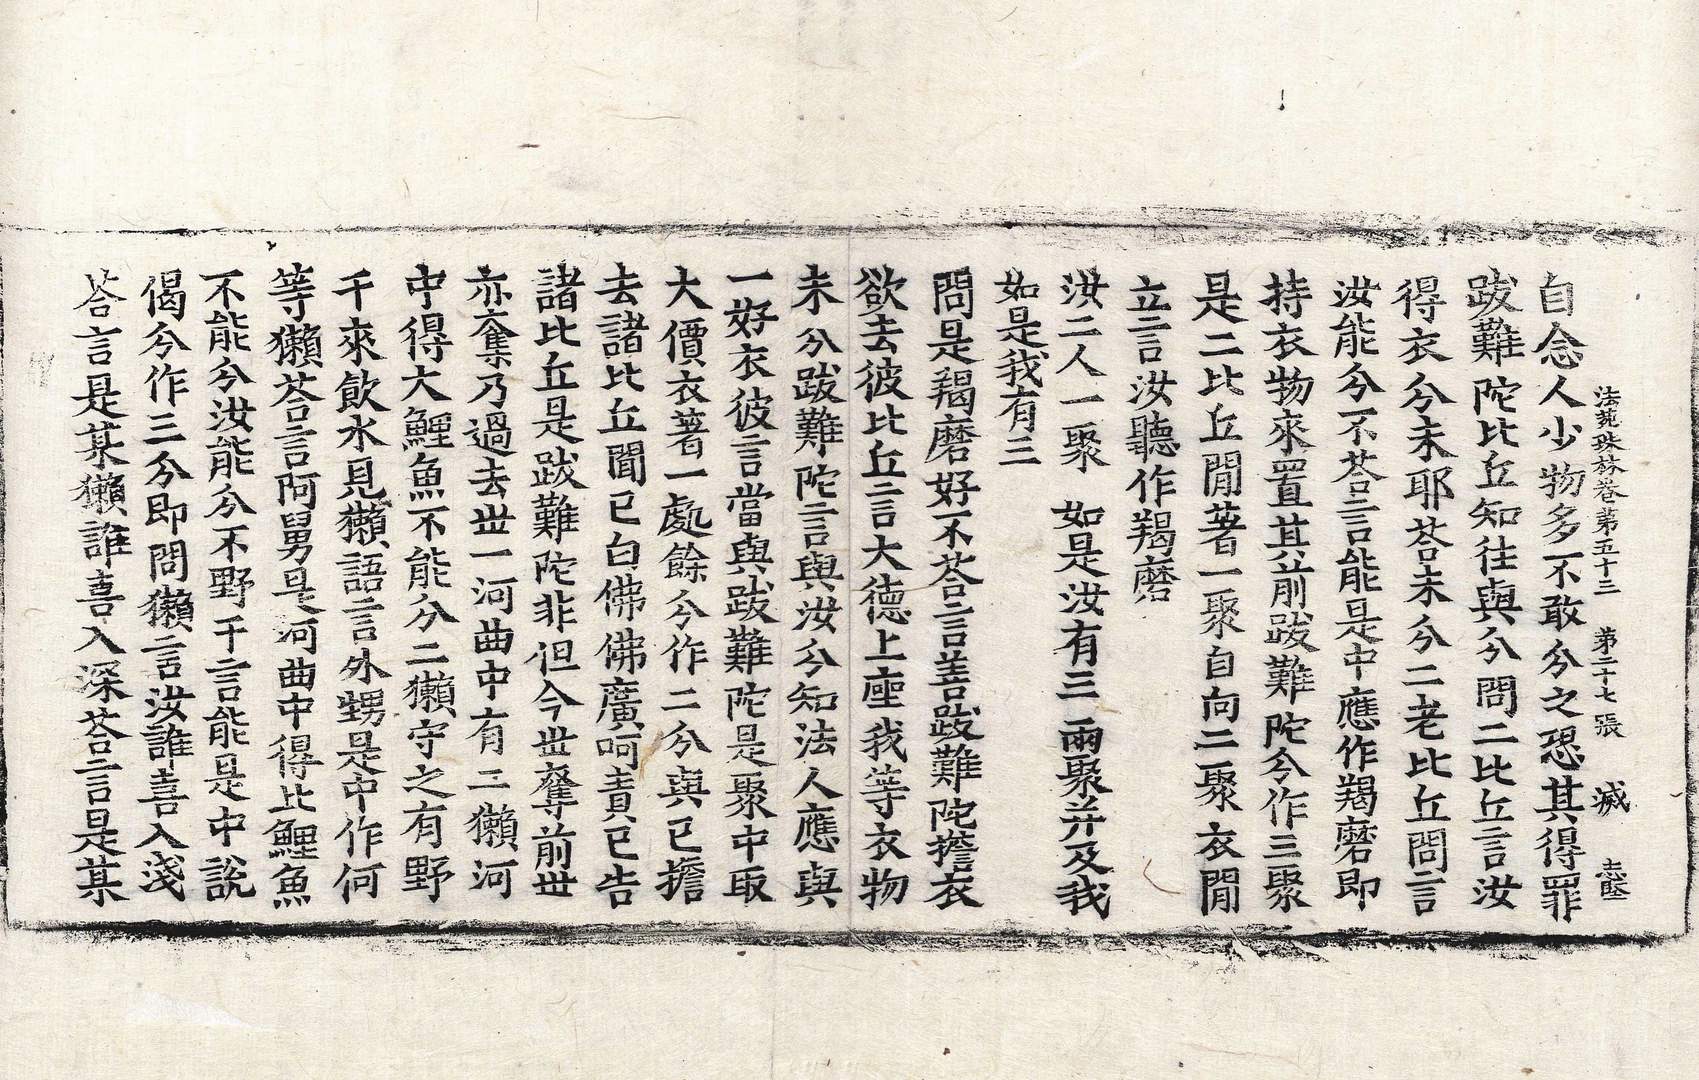 法苑珠林卷第五十三 第二十七張 滅 志堅
自念人少物多不敢分之恐其得罪
跋難陀比丘知往與分問二比丘言汝
得衣分未耶荅未分二老比丘問言
汝能分不荅言能是中應作羯磨即
持衣物來置其前跋難陀令作三聚
是二比丘閒著一聚自向二聚衣閒
立言汝聽作羯磨
汝二人一聚 如是汝有三 兩聚并及我
如是我有三
問是羯磨好不荅言善跋難陀擔衣
欲去彼比丘言大德上座我等衣物
未分跋難陀言與汝分知法人應與
一好衣彼言當與跋難陀是聚中取
大價衣著一處餘分作二分與已擔
去諸比丘聞已白佛佛廣呵責已告
諸比丘是跋難陀非但今世奪前世
亦奪乃過去世一河曲中有二獺河
中得大鯉魚不能分二獺守之有野
干來飲水見獺語言外甥是中作何
等獺荅言阿舅是河曲中得比鯉魚
不能分汝能分不野干言能是中說
偈分作三分即問獺言汝誰喜入淺
荅言是某獺誰喜入深荅言是某